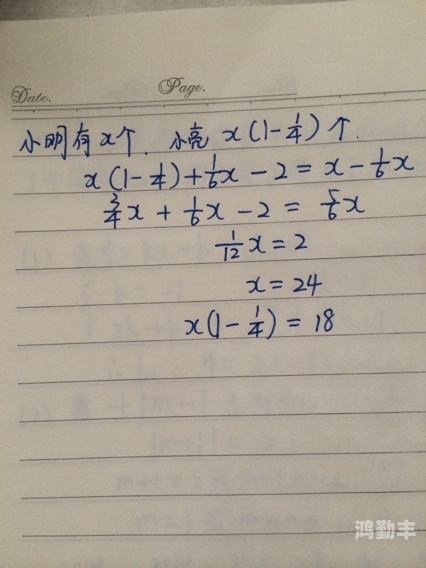 Date.
Page.
小明有x个. 小亮 x(1-1/4)个.
x(1-1/4)+1/6x-2=x-1/6x
3/4x+1/6x-2=5/6x
1/12x=2
x=24
x(1-1/4)=18
鸿勤丰